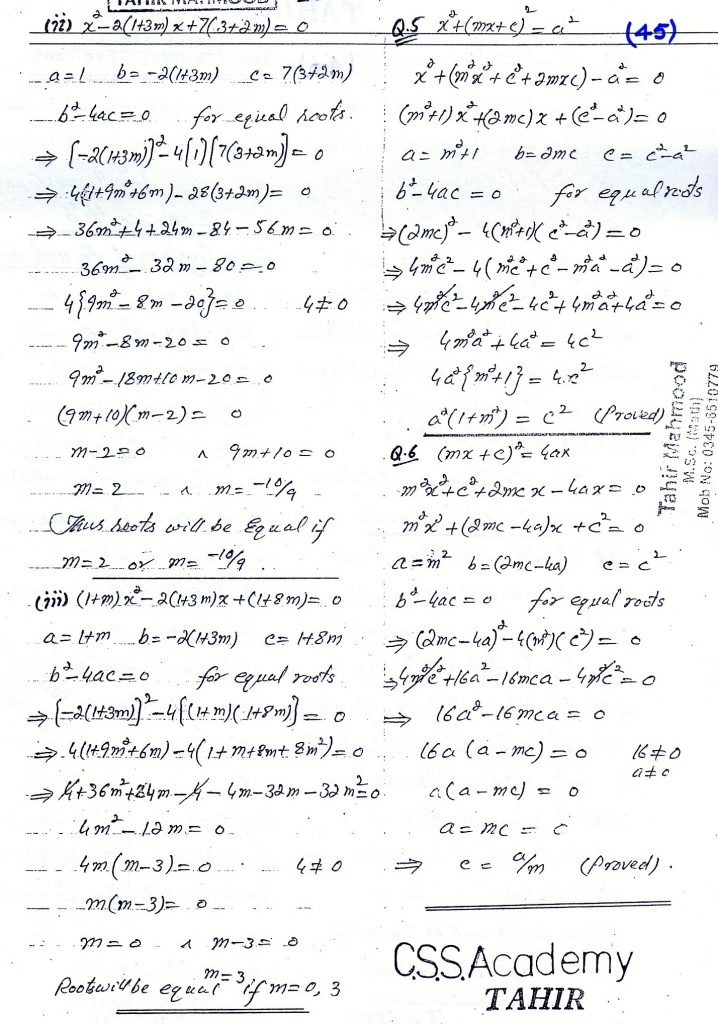 TAHIR MAHMOOD
(ii) x² - 2(1+3m)x + 7(3+2m) = 0
a = 1 b = -2(1+3m) c = 7(3+2m)
b² - 4ac = 0 for equal roots.
⇒ [-2(1+3m)]² - 4[1][7(3+2m)] = 0
⇒ 4(1+9m²+6m) - 28(3+2m) = 0
⇒ 36m² + 4 + 24m - 84 - 56m = 0
36m² - 32m - 80 = 0
4{9m² - 8m - 20} = 0 4≠0
9m² - 8m - 20 = 0
9m² - 18m + 10m - 20 = 0
(9m+10)(m-2) = 0
m - 2 = 0 ∧ 9m + 10 = 0
m = 2 ∧ m = -10/9
Thus roots will be Equal if
m = 2 or m = -10/9.
(iii) (1+m)x² - 2(1+3m)x + (1+8m) = 0
a = 1+m b = -2(1+3m) c = 1+8m
b² - 4ac = 0 for equal roots
⇒ [-2(1+3m)]² - 4[(1+m)(1+8m)] = 0
⇒ 4(1+9m²+6m) - 4(1+m+8m+8m²) = 0
⇒ 4 + 36m² + 24m - 4 - 4m - 32m - 32m² = 0
4m² - 12m = 0
4m(m-3) = 0 4≠0
m(m-3) = 0
m = 0 ∧ m - 3 = 0
m = 3
Roots will be equal if m = 0, 3
(45)
Q.5 x² + (mx+c)² = a²
x² + (m²x² + c² + 2mxc) - a² = 0
(m²+1)x² + (2mc)x + (c²-a²) = 0
a = m²+1 b = 2mc c = c²-a²
b² - 4ac = 0 for equal roots
⇒ (2mc)² - 4(m²+1)(c²-a²) = 0
⇒ 4m²c² - 4(m²c² + c² - m²a² - a²) = 0
⇒ 4m²c² - 4m²c² - 4c² + 4m²a² + 4a² = 0
⇒ 4m²a² + 4a² = 4c²
4a²{m²+1} = 4c²
a²(1+m²) = c² (Proved)
Q.6 (mx+c)² = 4ax
m²x² + c² + 2mcx - 4ax = 0
m²x² + (2mc-4a)x + c² = 0
a = m² b = (2mc-4a) c = c²
b² - 4ac = 0 for equal roots
⇒ (2mc-4a)² - 4(m²)(c²) = 0
⇒ 4m²c² + 16a² - 16mca - 4m²c² = 0
⇒ 16a² - 16mca = 0
16a(a-mc) = 0 16≠0
a≠0
a(a-mc) = 0
a = mc = 0
⇒ c = a/m (Proved).
Tahir Mahmood
M.Sc. (Math)
Mob No: 0345-6510779
C.S.S. Academy
TAHIR